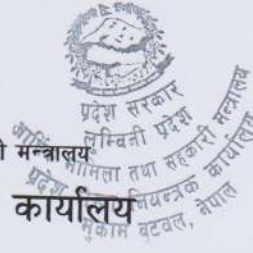 प्रदेश सरकार
लुम्बिनी प्रदेश
आर्थिक मामिला तथा सहकारी मन्त्रालय
प्रदेश नियन्त्रक कार्यालय
मुकाम बुटवल, नेपाल
ी मन्त्रालय
कार्यालय